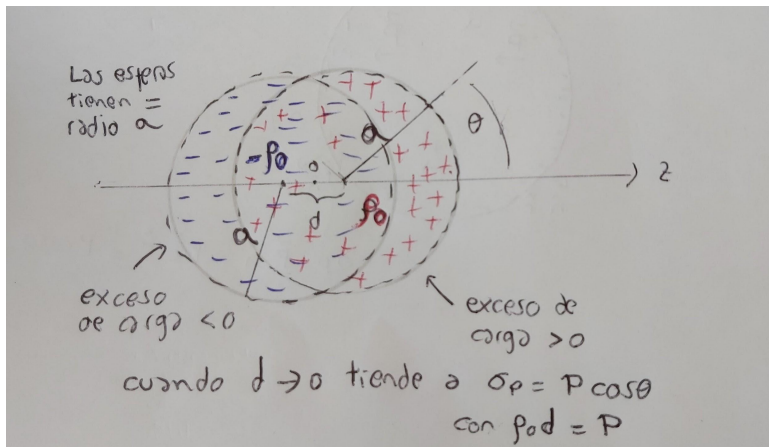 Las esferas
tienen =
radio a
θ
a
-ρ0
o
z
d
ρ0
a
exceso
de carga <0
exceso de
carga >0
cuando d → 0 tiende a σP = P cosθ
con ρ0d = P